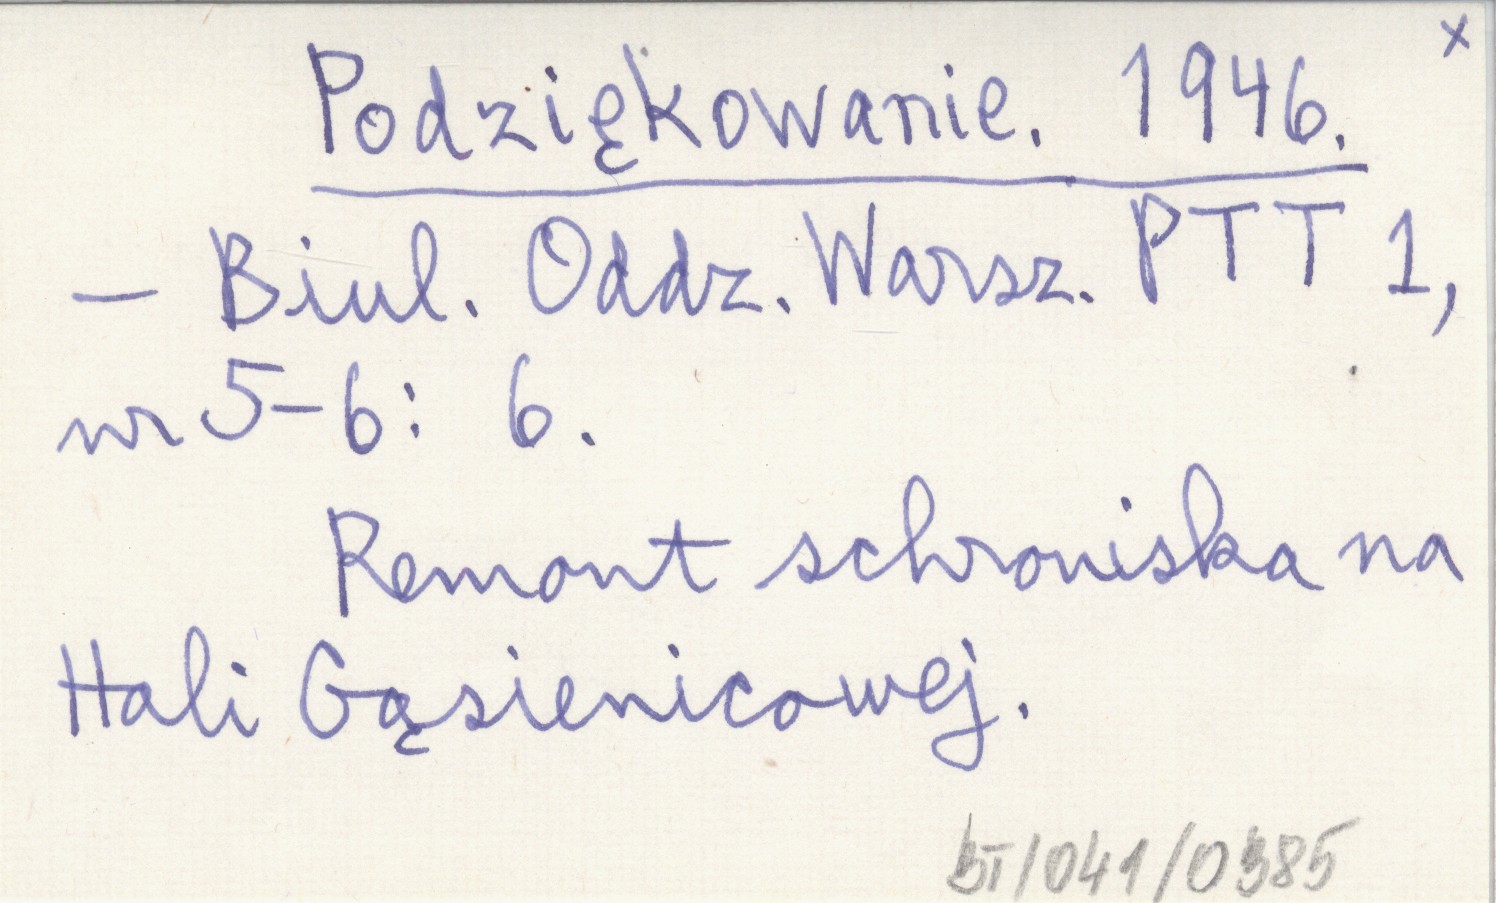 x
Podziękowanie. 1946.
– Biul. Oddz. Warsz. PTT 1,
nr 5–6: 6.
Remont schroniska na
Hali Gąsienicowej.
BT/041/0385